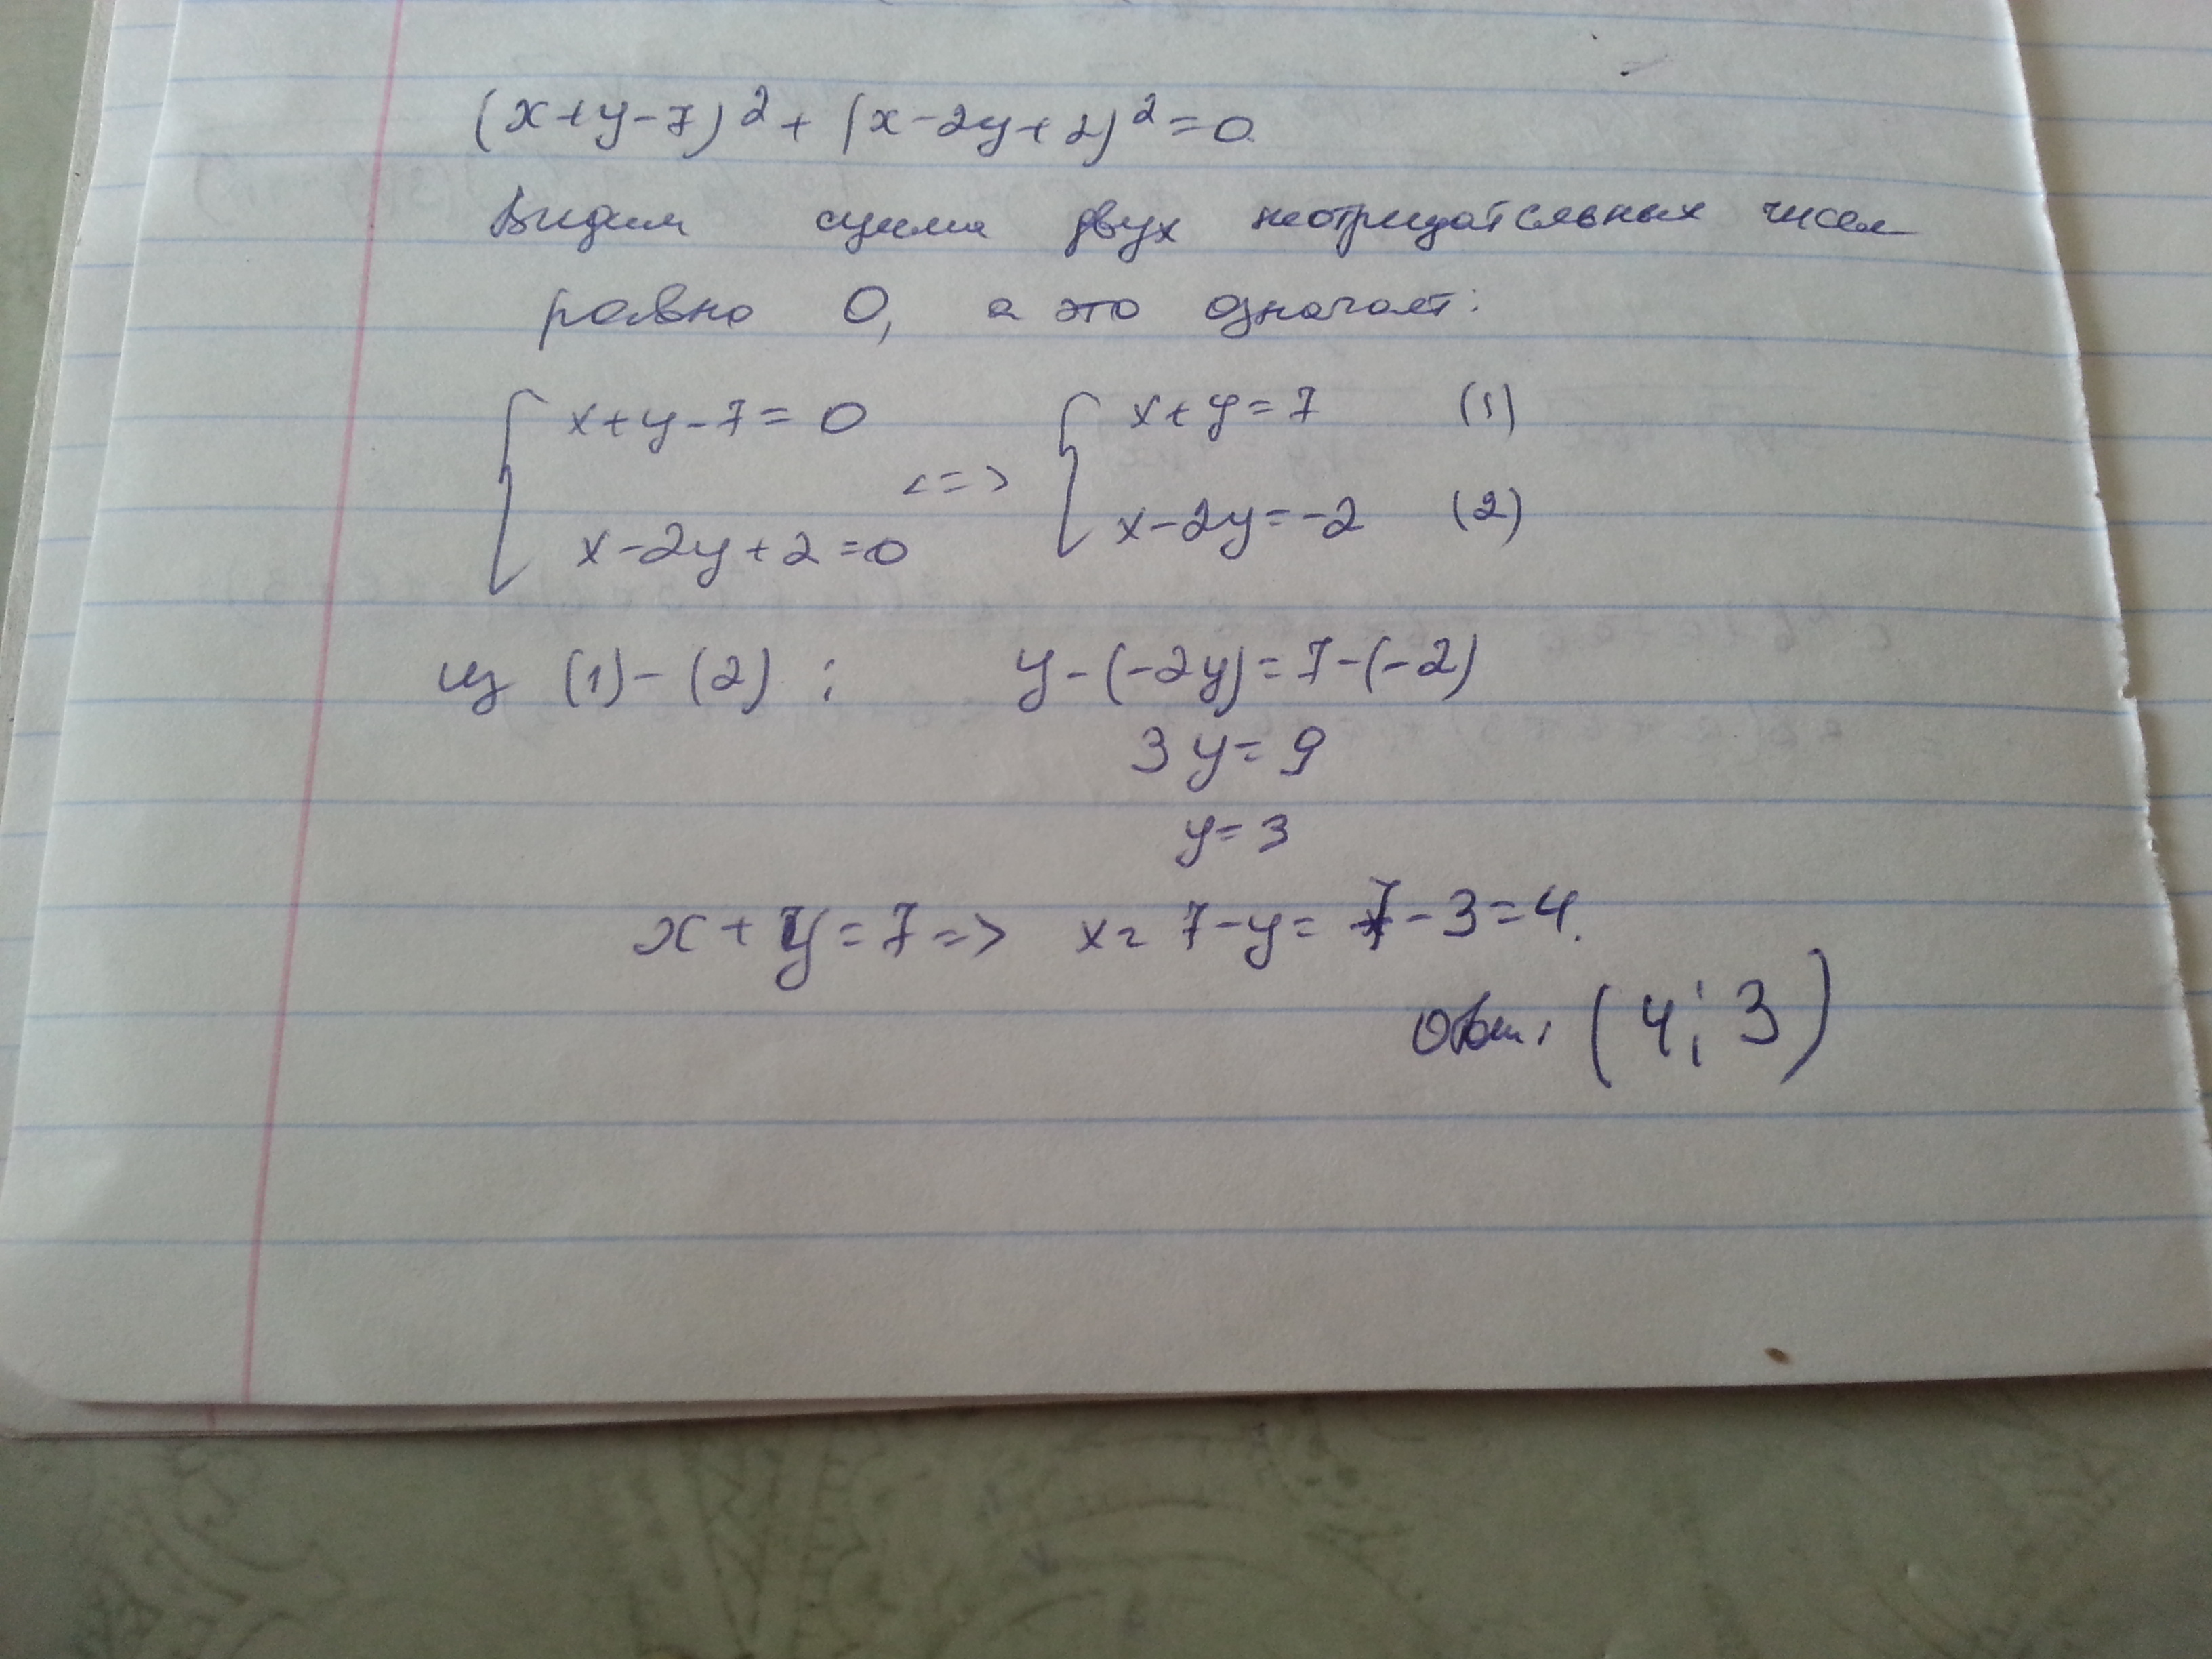 (x+y-7)²+(x-2y+2)²=0
Видим сумма двух неотрицательных чисел
равно 0, а это означает:
{ x+y-7=0 <=> { x+y=7 (1)
x-2y+2=0 x-2y=-2 (2)
из (1)-(2): y-(-2y)=7-(-2)
3y=9
y=3
x+y=7=> x=7-y=7-3=4.
Ответ: (4;3)